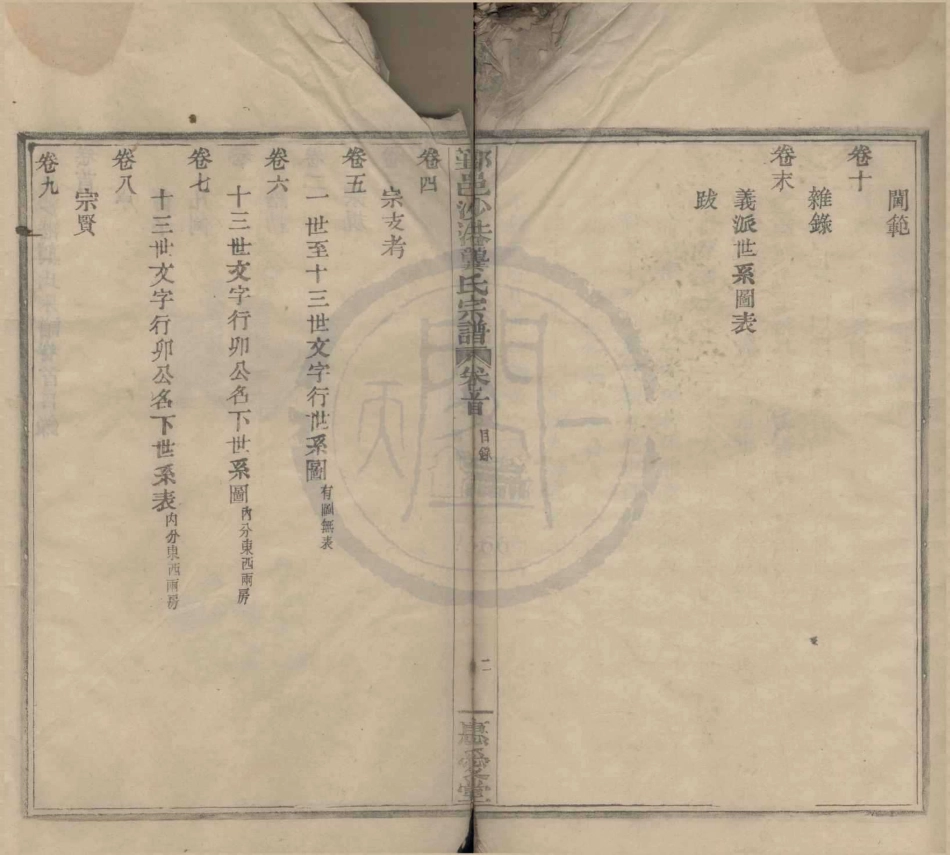 閫範
卷十
雜錄
卷末
義派世系圖表
跋
鄞邑沙港龔氏宗譜 卷首 目錄 二 惠愛堂
卷四
宗支考
卷五
一世至十三世文字行世系圖有圖無表
卷六
十三世文字行卯公名下世系圖內分東西兩房
卷七
十三世文字行卯公名下世系表內分東西兩房
卷八
宗賢
卷九